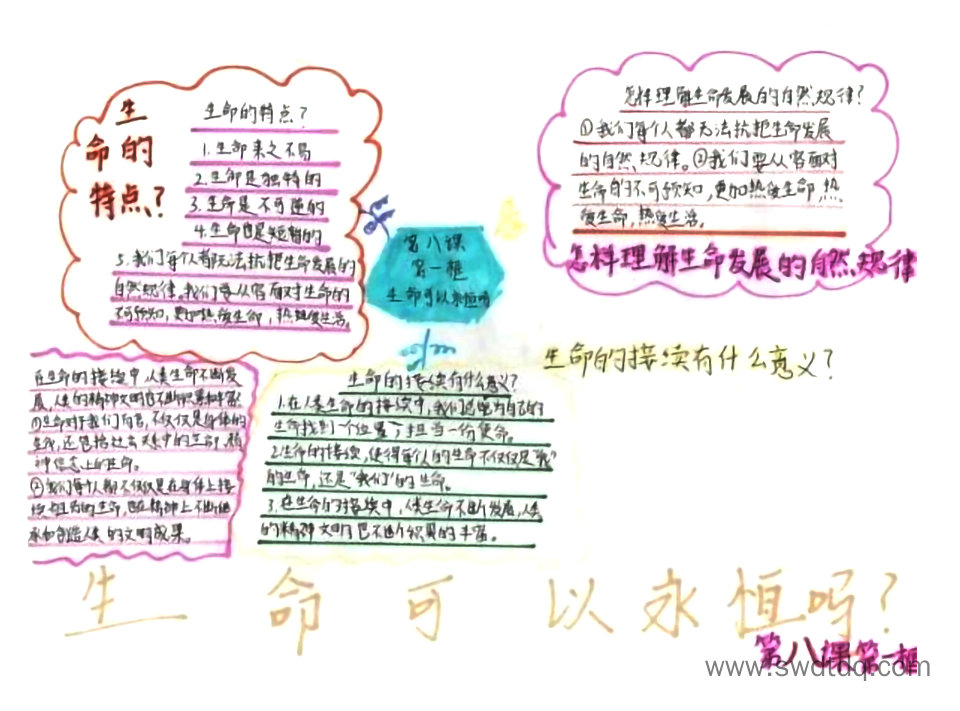 生
命的
特点？
生命的特点？
1.生命来之不易
2.生命是独特的
3.生命是不可逆的
4.生命也是短暂的
5.我们每个人都无法抗拒生命发展的
自然规律。我们要从容面对生命的
不可预知，更加热爱生命，热爱生活。
第八课
第一框
生命可以永恒吗
怎样理解生命发展的自然规律？
①我们每个人都无法抗拒生命发展
的自然规律。②我们要从容面对
生命的不可预知，更加热爱生命，热
爱生命，热爱生活。
怎样理解生命发展的自然规律
生命的接续有什么意义？
在生命的接续中，人类生命不断发
展，人类的精神文明也不断积累和丰富
①生命对于我们而言，不仅仅是身体的
生命，还包括社会关系中的生命，精
神信念上的生命。
②我们每个人都不仅仅是在身体上接
续祖先的生命，也在精神上不断继
承和创造人类的文明成果。
生命的接续有什么意义？
1.在人类生命的接续中，我们总能为自己的
生命找到一个位置，担当一份使命。
2.生命的接续，使得每个人的生命不仅仅是“我”
的生命，还是“我们”的生命。
3.在生命的接续中，人类生命不断发展，人类
的精神文明也不断积累的丰富。
生命可以永恒吗？
第八课第一框
www.swdtdq.com